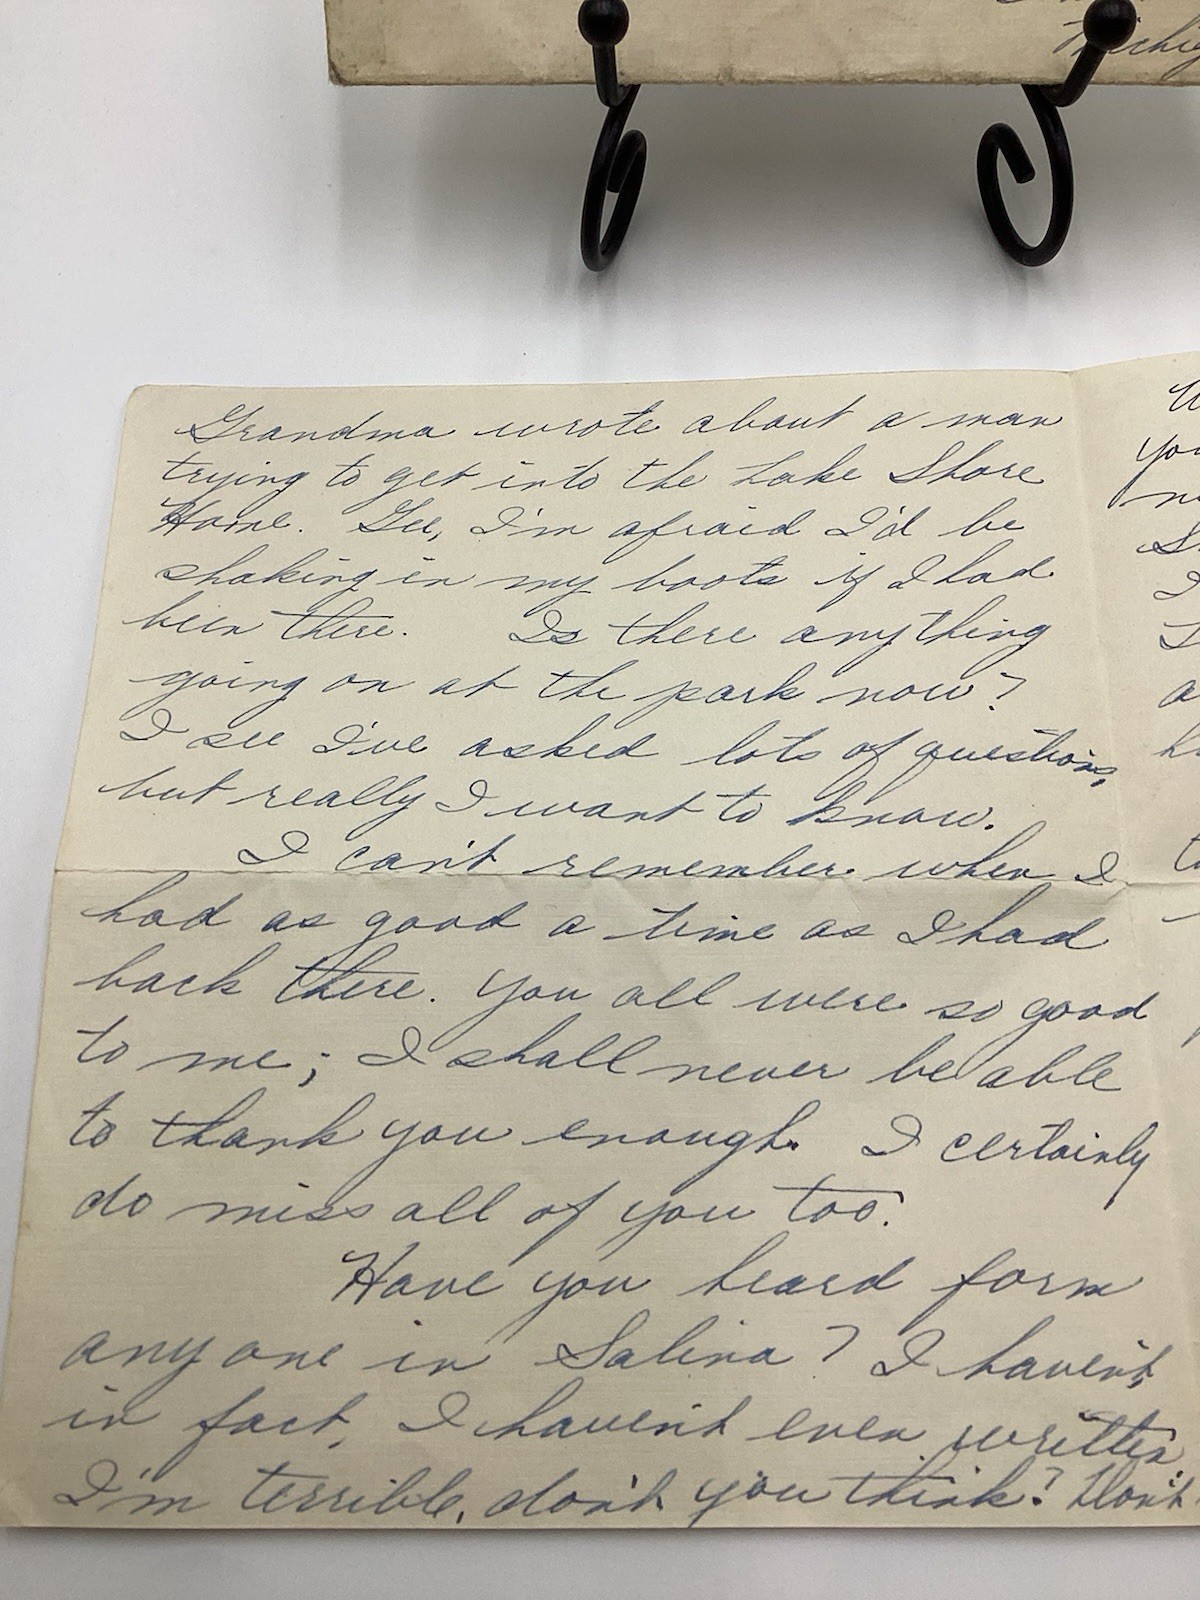 Michig
Grandma wrote about a man
trying to get into the Lake Shore
Home. Gee, I'm afraid I'd be
shaking in my boots if I had
been there. Is there anything
going on at the park now?
I see I've asked lots of questions,
but really I want to know.
I can't remember when I
had as good a time as I had
back there. You all were so good
to me; I shall never be able
to thank you enough. I certainly
do miss all of you too.
Have you heard form
anyone in Salina? I haven't,
in fact, I haven't even written
I'm terrible, don't you think? Don't
W
you